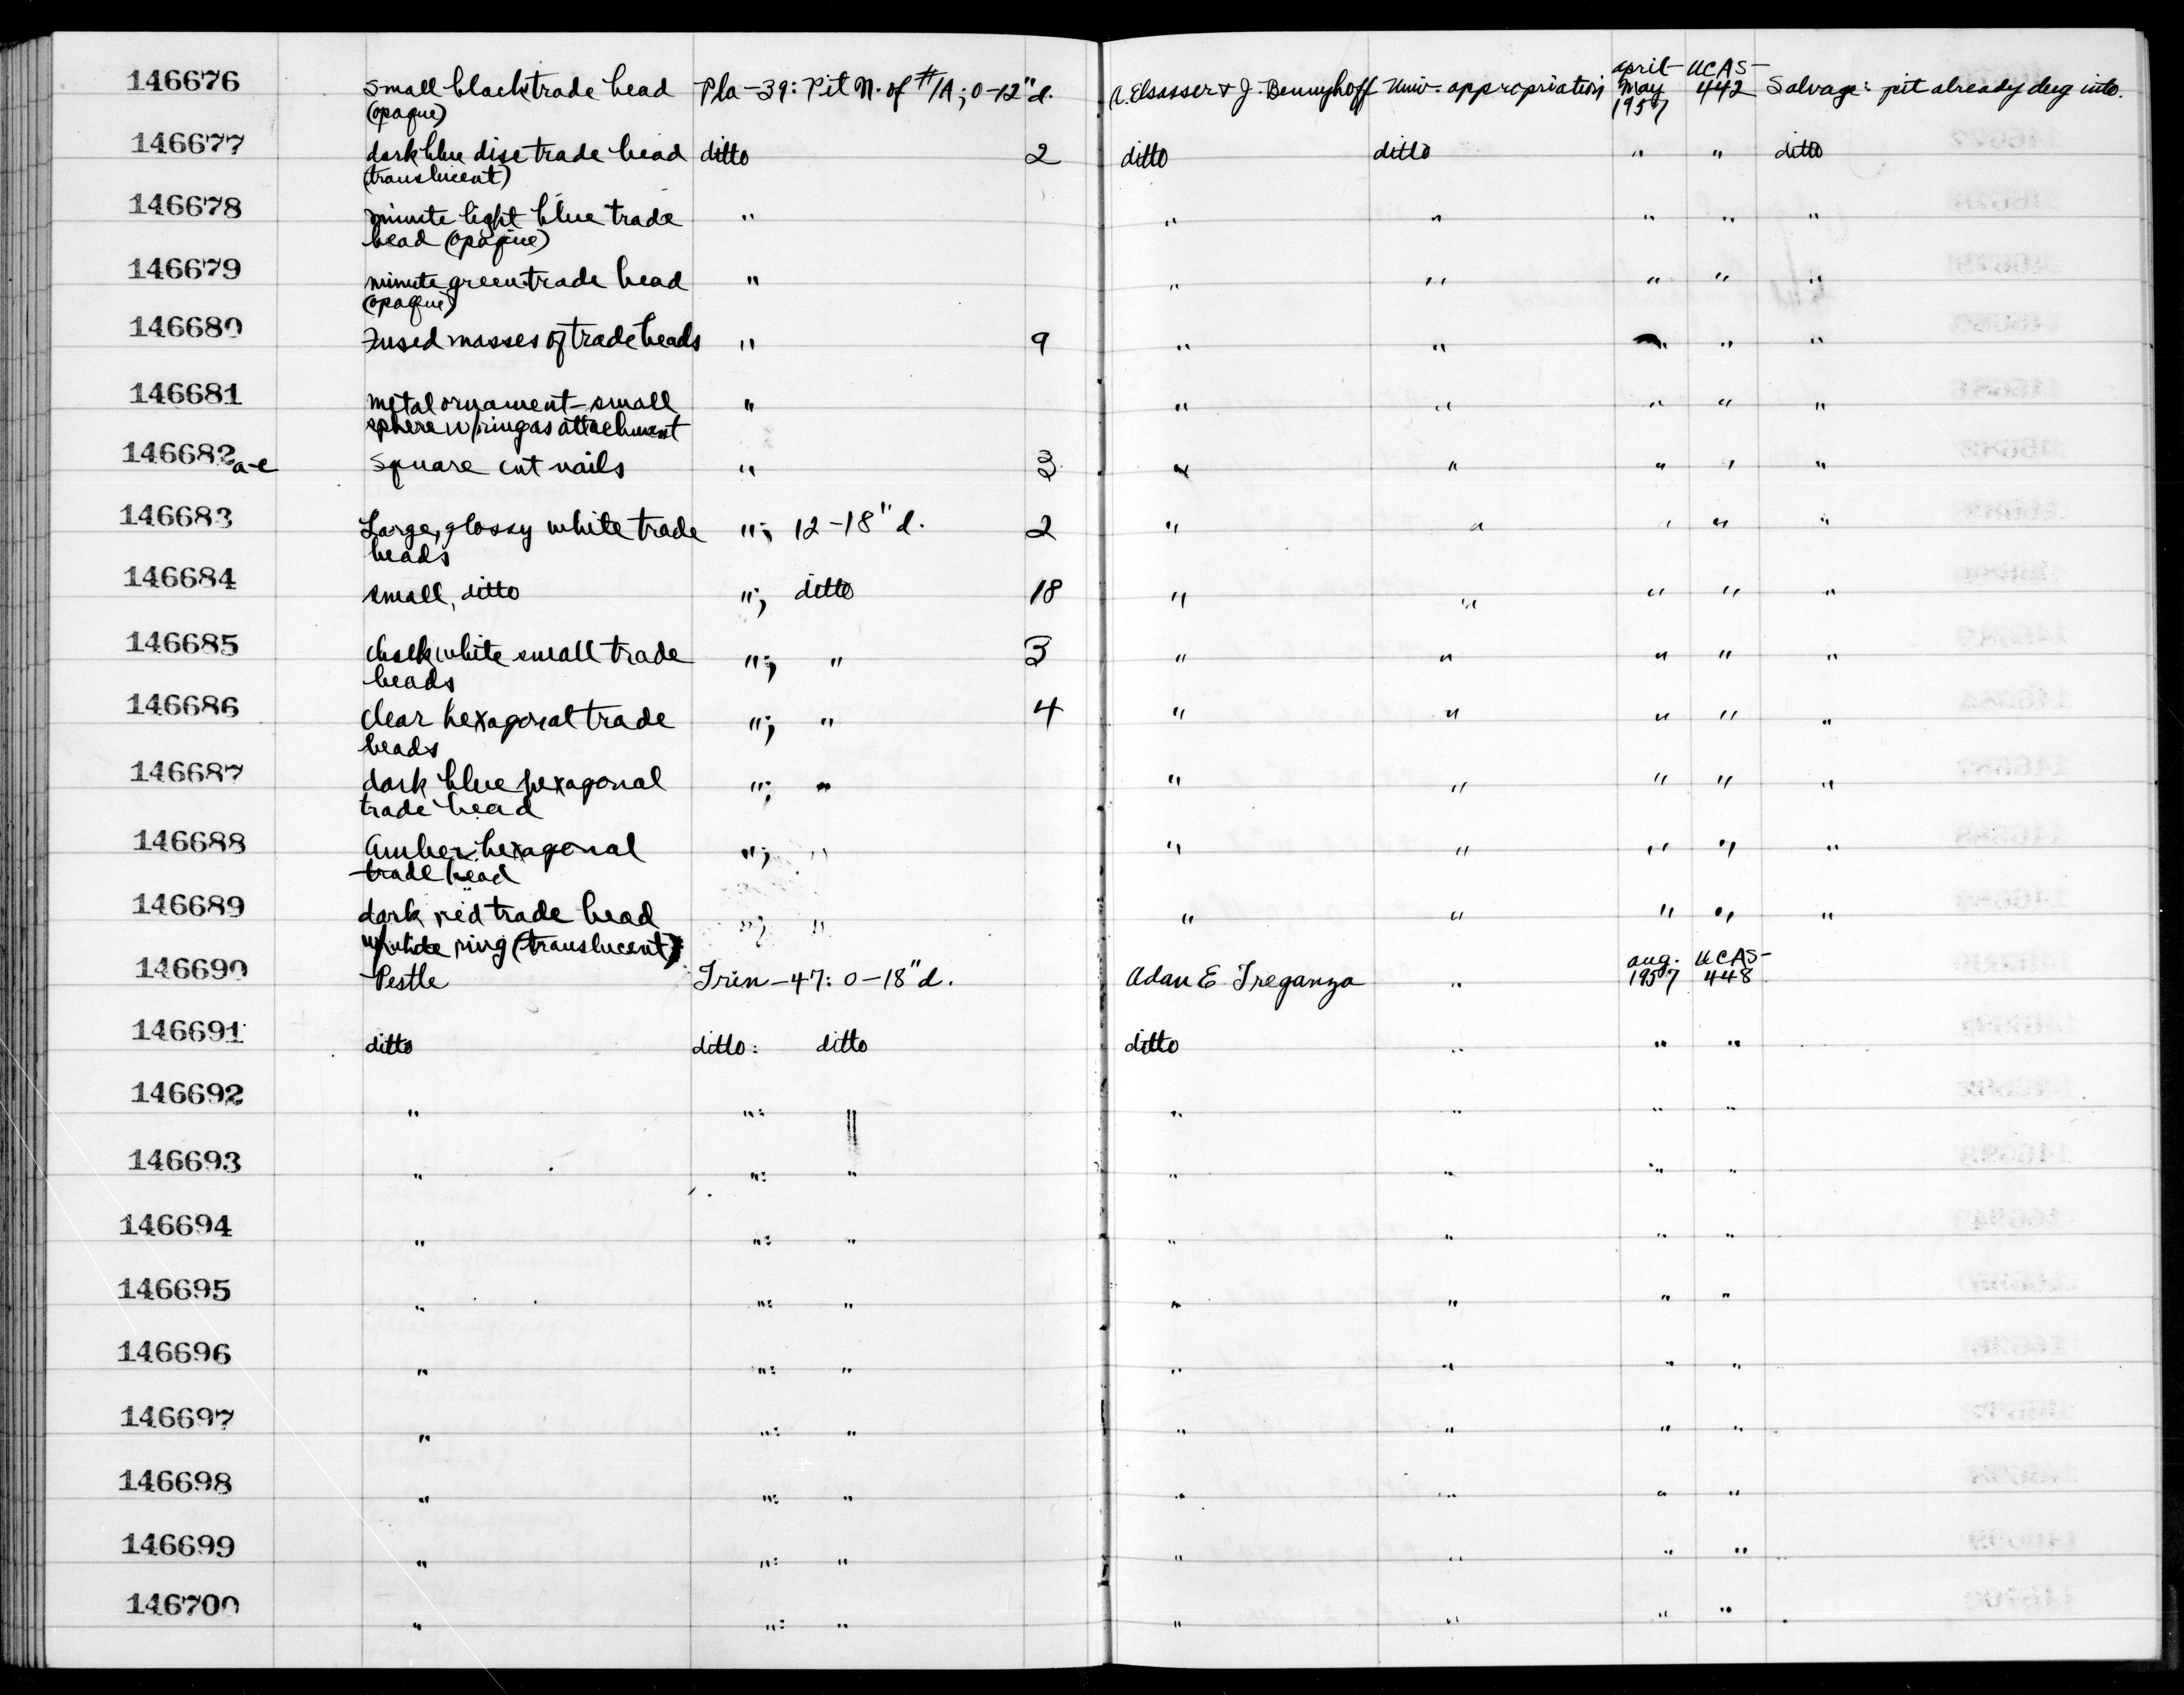 146676 small black trade bead Pla-39: Pit N. of #1A; 0-12" d. A. Elsasser & J. Bennyhoff Univ. appropriation April- May 1957 UCAS- 442 Salvage: pit already dug into.
(opaque)
146677 dark blue disc trade bead ditto 2 ditto ditto " " ditto
(translucent)
146678 minute light blue trade " " " " " "
bead (opaque)
146679 minute green trade bead " " " " " "
(opaque)
146680 Fused masses of trade beads " 9 " " " " "
146681 metal ornament-small " " " " " "
sphere w/ring as attachment
146682 a-c Square cut nails " 3 " " " " "
146683 Large, glossy white trade "; 12-18" d. 2 " " " " "
beads
146684 small, ditto "; ditto 18 " " " " "
146685 chalk white small trade "; " 3 " " " " "
beads
146686 clear hexagonal trade "; " 4 " " " " "
beads
146687 dark blue hexagonal "; " " " " " "
trade bead
146688 Amber hexagonal "; " " " " " "
trade bead
146689 dark red trade bead "; " " " " " "
w/white ring (translucent)
146690 Pestle Trin-47: 0-18" d. Adan E. Treganza " Aug. 1957 UCAS- 448
146691 ditto ditto: ditto ditto " " "
146692 " ": " " " " "
146693 " ": " " " " "
146694 " ": " " " " "
146695 " ": " " " " "
146696 " ": " " " " "
146697 " ": " " " " "
146698 " ": " " " " "
146699 " ": " " " " "
146700 " ": " " " " "